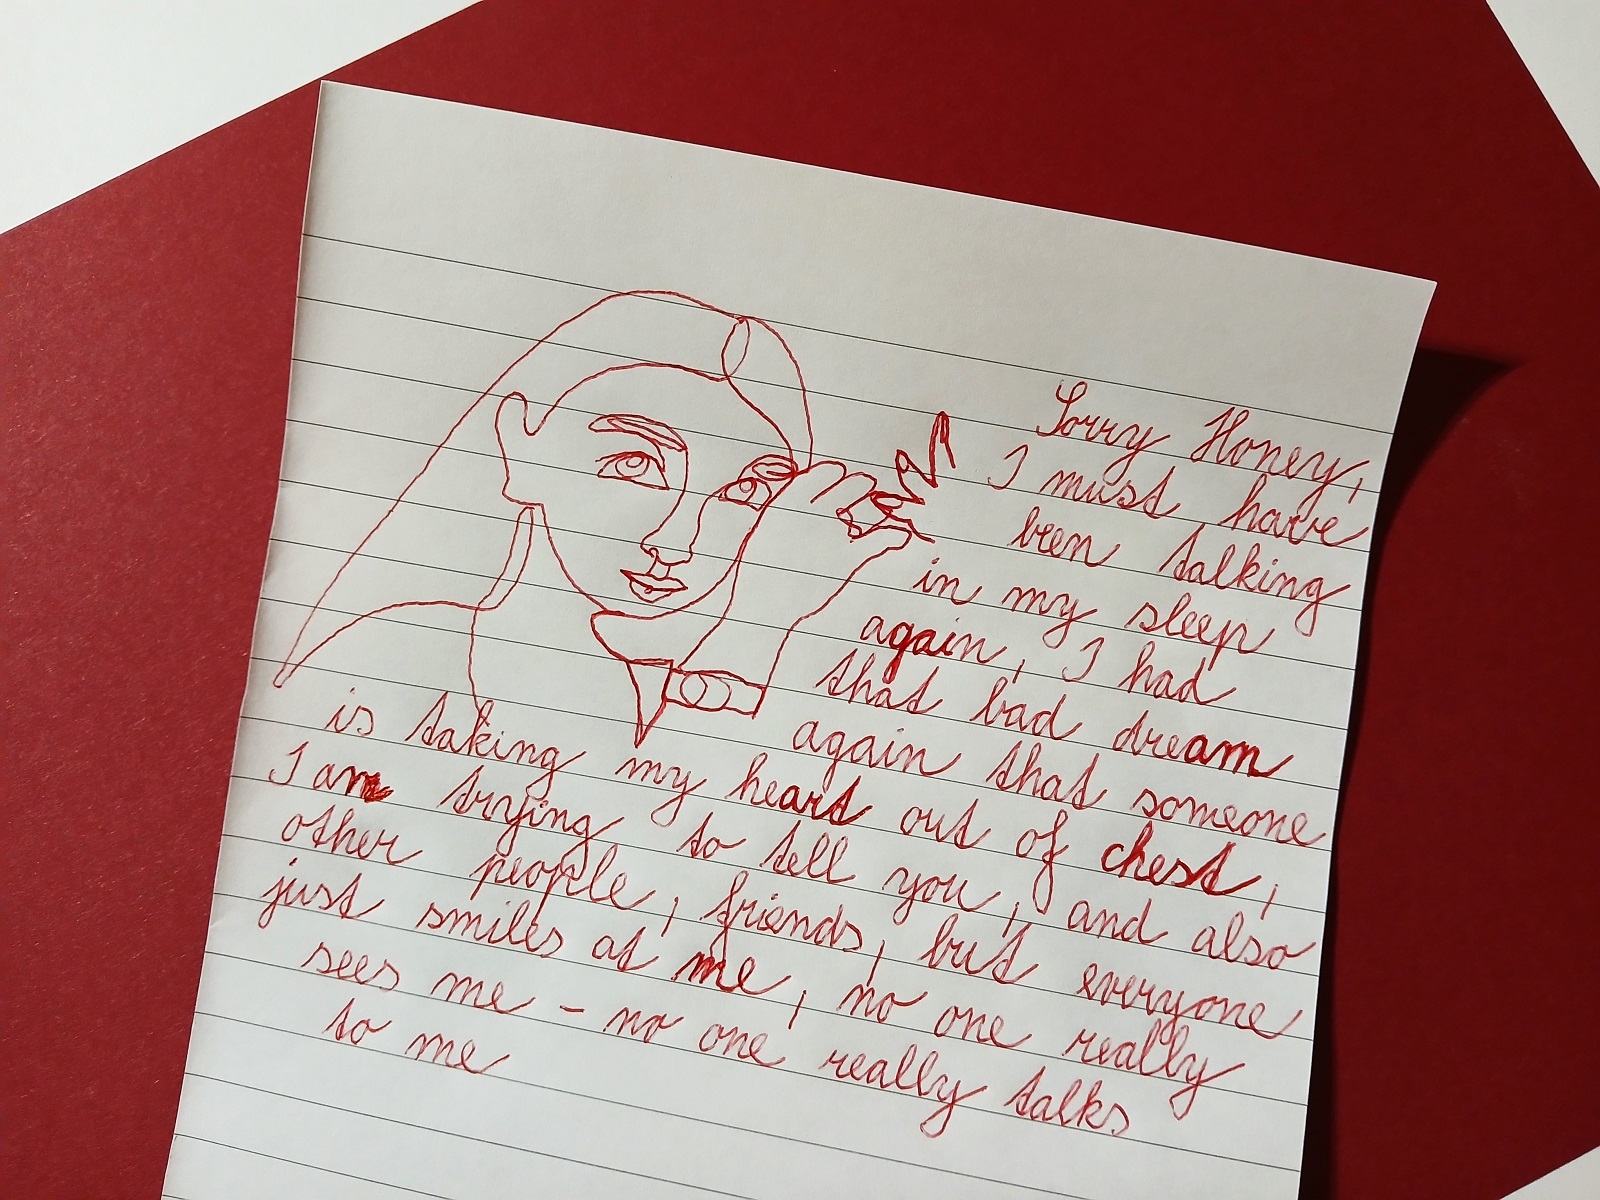 Sorry Honey,
I must have
been talking
in my sleep
again, I had
that bad dream
again that someone
is taking my heart out of chest,
I am trying to tell you, and also
other people, friends, but everyone
just smiles at me, no one really
sees me - no one really talks
to me